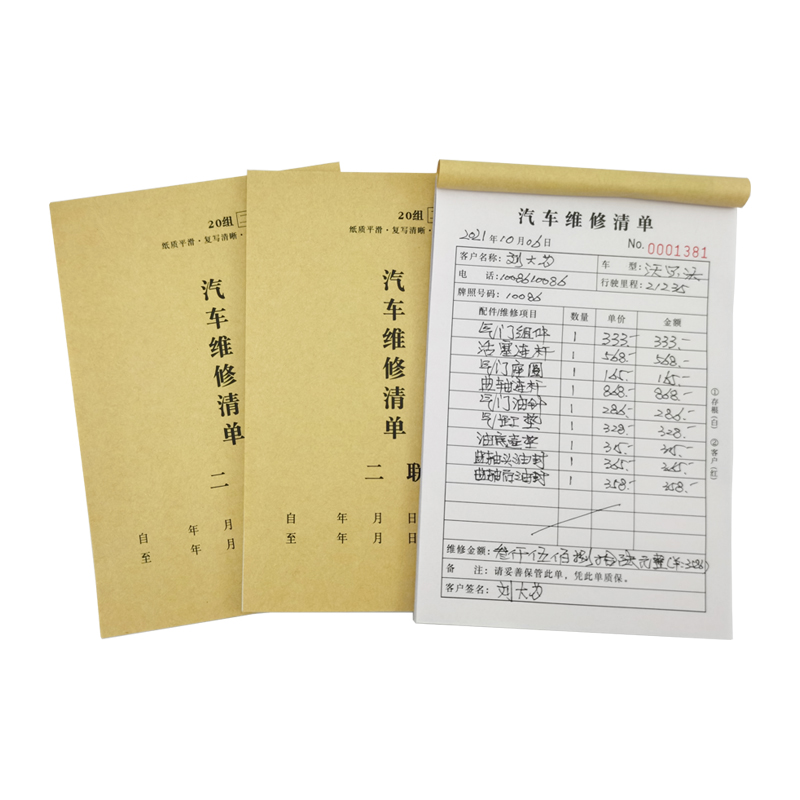 20组
纸质平滑·复写清晰·
汽车维修清单
二
自 年 月
至 年 月
20组
纸质平滑·复写清晰·
汽车维修清单
二 联
自 年 月 日
至 年 月 日
汽车维修清单
2021年10月06日 No. 0001381
客户名称: 刘大为 车 型:
电 话: 1008610086 行驶里程: 21235
牌照号码: 10086
配件/维修项目 数量 单价 金额
气门组件 1 333.- 333.-
活塞连杆 1 568.- 568.-
气门座圈 1 165.- 165.-
曲轴连杆 1 868.- 868.-
气门油针 1 286.- 286.-
气缸垫 1 328.- 328.-
油底壳垫 1 315.- 315.-
曲轴头油封 1 365.- 365.-
曲轴后油封 1 358.- 358.-
维修金额: 叁仟伍佰捌拾
备 注: 请妥善保管此单,凭此单质保。
客户签名: 刘大为
①存根(白) ②客户(红)